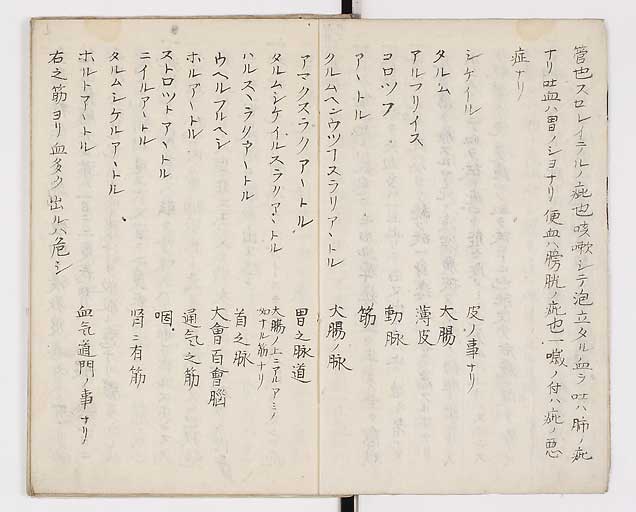 管也スロレイテルノ疵也咳嗽シテ泡立タル血ヲ吐ハ肺ノ疵
ナリ吐血ハ胃ノシヨナリ便血ハ膀胱ノ疵也一嘰ノ付ハ疵ノ悪
症ナリ
シケイル 皮ノ事ナリ
タルム 大腸
アルフリイス 薄皮
コロツフ 動脉
アートル 筋
タルムヘニウツナスラリアートル 大腸ノ脉
アマクスラクアートル 胃之脉道
タルムシケイルスラクアートル 大腸ノ上ニアルアミノ如ナル筋ナリ
ハルスヽラクアートル 首之脉
ウヘルフルヘシ 大會百會腦
ホルアートル 通气之筋
ストロツトアートル 咽
ニイルアートル 腎ニ有筋
タルムシケルアートル
ホルトアートル 血气道門ノ事ナリ
右之筋ヨリ血多ク出ルハ危シ